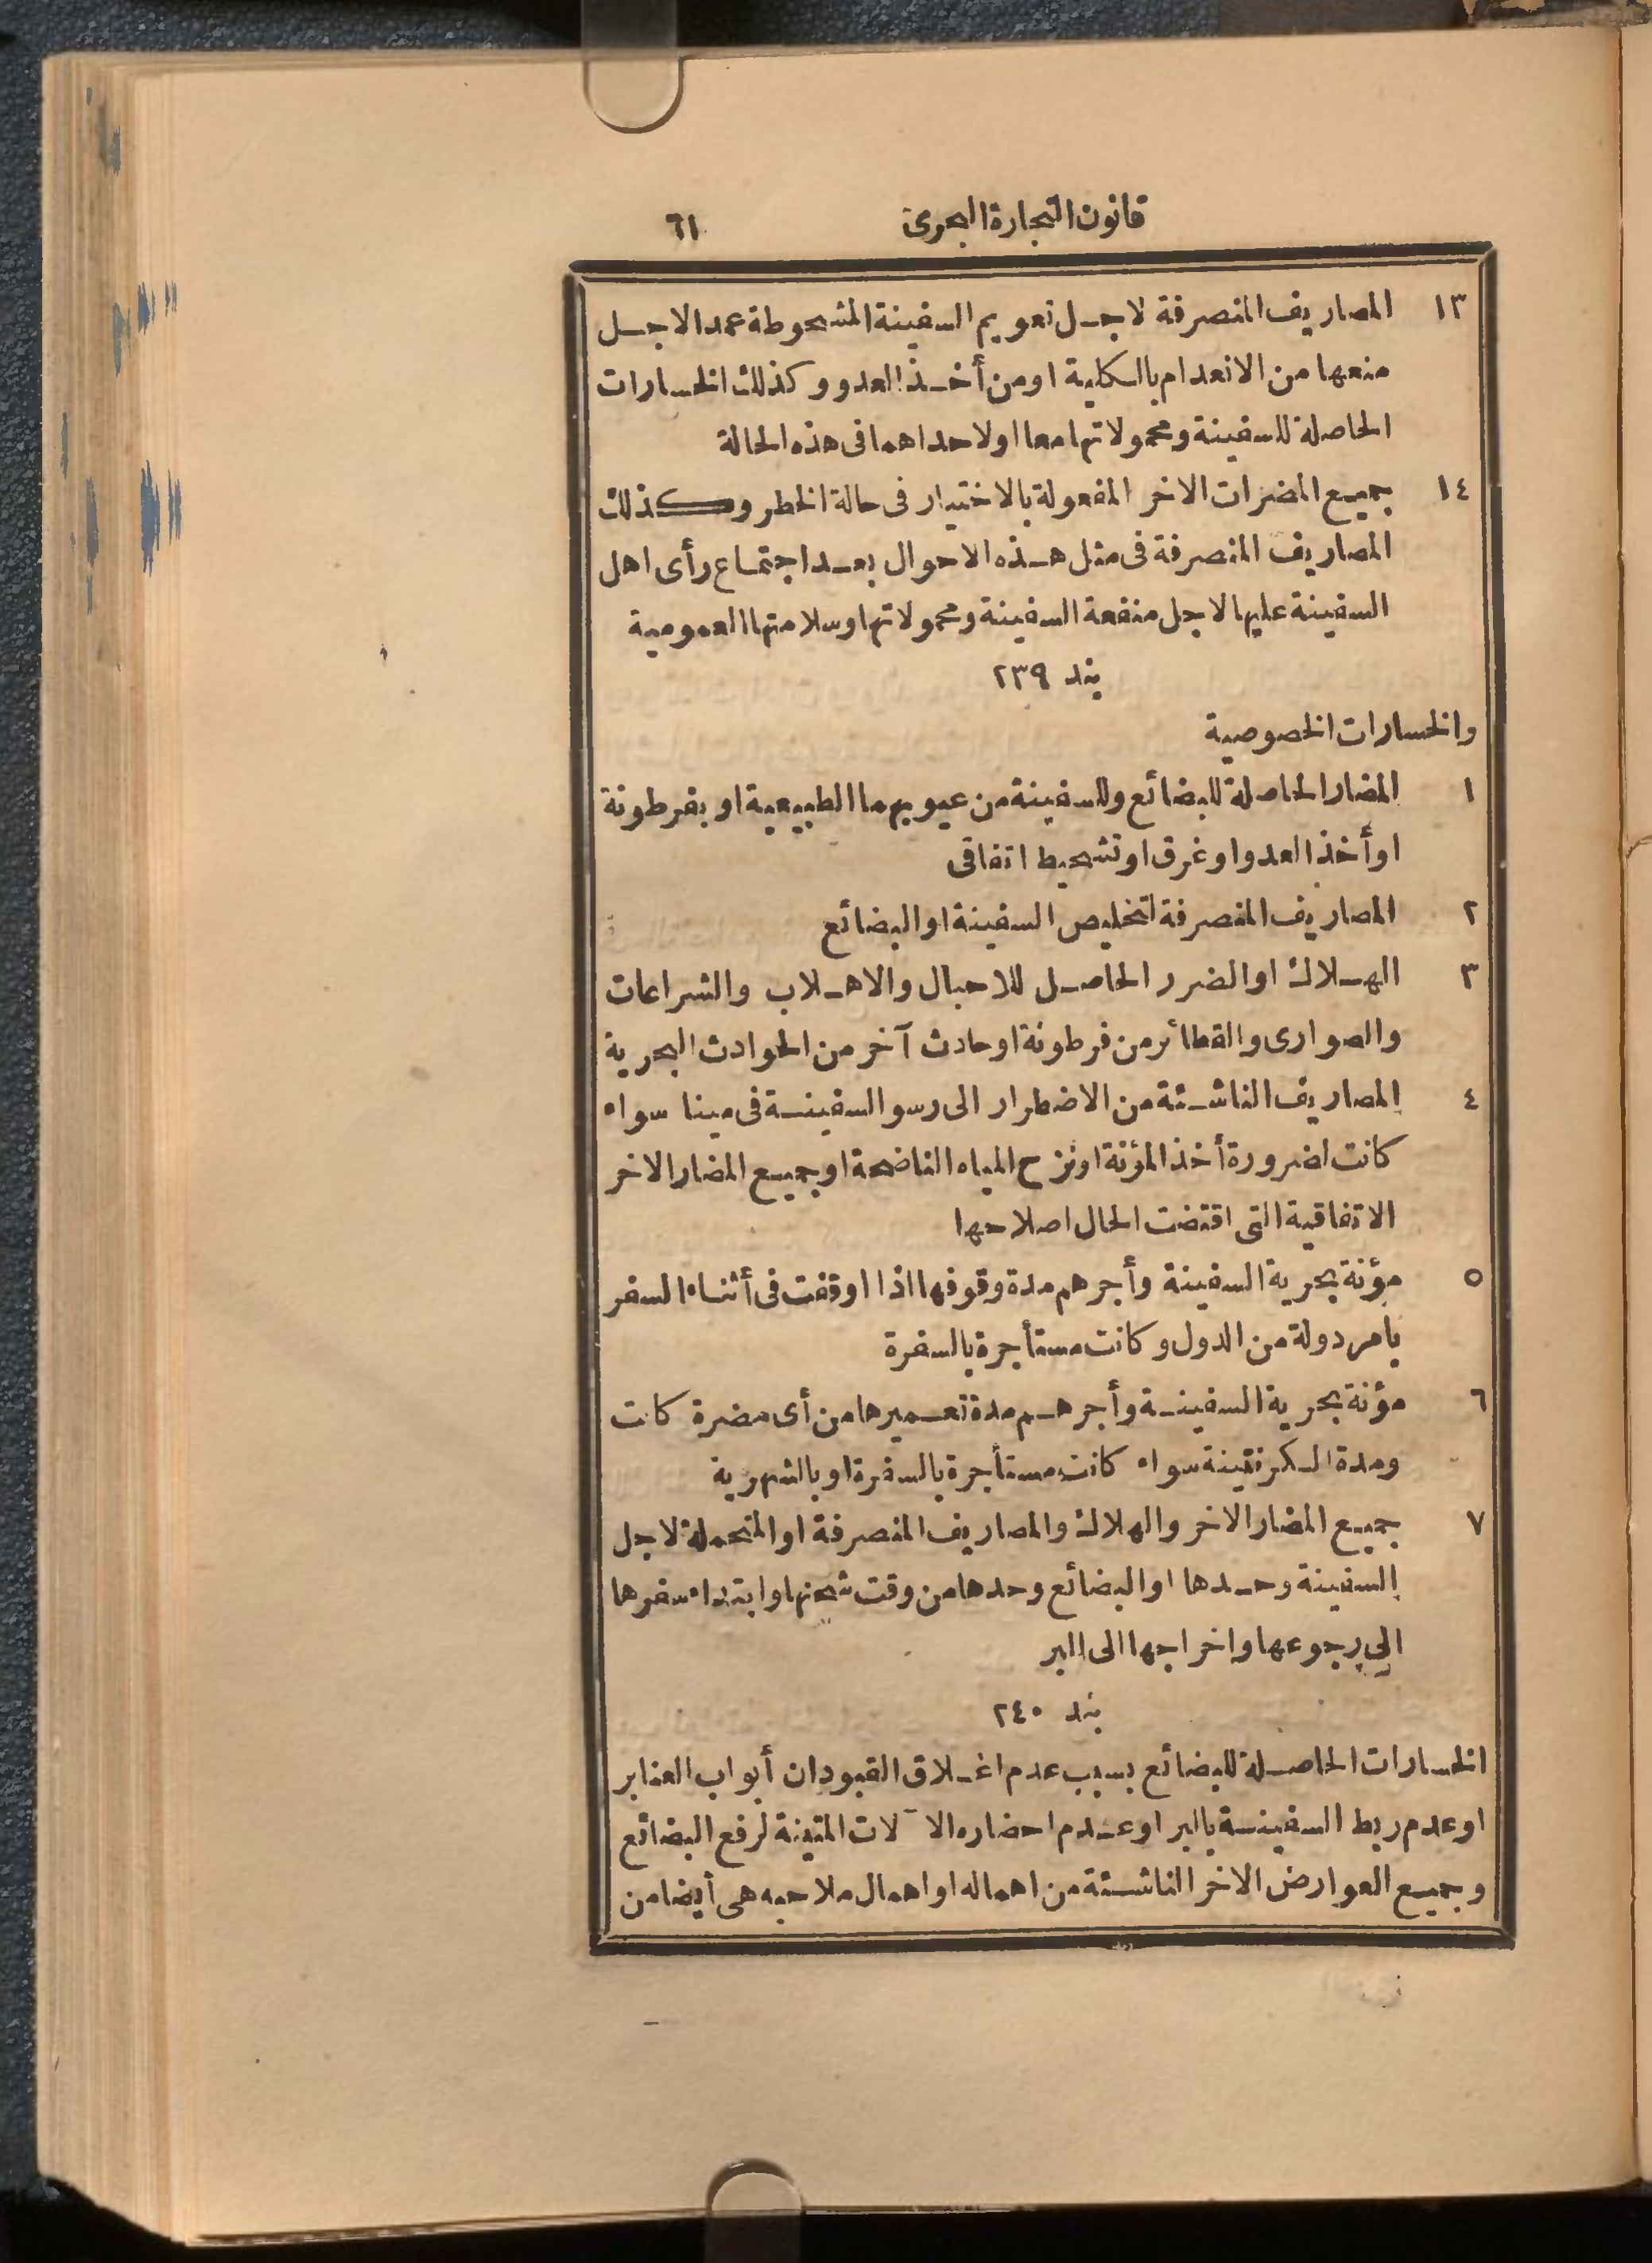 قانون التجارة البحرى ٦١
١٣ المصاريف المنصرفة لاجل تعويم السفينة المشحوطة عمدا لاجل
منعها من الانعدام بالكلية او من أخذ العدو وكذلك الخسارات
الحاصلة للسفينة ومحمولاتها معا او لاحداهما فى هذه الحالة
١٤ جميع المضرات الاخر المفعولة بالاختيار فى حالة الخطر وكذلك
المصاريف المنصرفة فى مثل هذه الاحوال بعد اجتماع رأى اهل
السفينة عليها لاجل منفعة السفينة ومحمولاتها وسلامتها العمومية
بند ٢٣٩
والخسارات الخصوصية
١ المضار الحاصلة للبضائع وللسفينة من عيوبهما الطبيعية او بفرطونة
او أخذ العدو او غرق او تشحيط اتفاقى
٢ المصاريف المنصرفة لتخليص السفينة او البضائع
٣ الهلاك او الضرر الحاصل للاحبال والاهلاب والشراعات
والصوارى والقطائر من فرطونة او حادث آخر من الحوادث البحرية
٤ المصاريف الناشئة من الاضطرار الى رسو السفينة فى مينا سواء
كانت لضرورة أخذ المؤنة او نزح المياه الناضحة او جميع المضار الاخر
الاتفاقية التى اقتضت الحال اصلاحها
٥ مؤنة بحرية السفينة وأجرهم مدة وقوفها اذا اوقفت فى أثناء السفر
بامر دولة من الدول وكانت مستأجرة بالسفرة
٦ مؤنة بحرية السفينة وأجرهم مدة تعميرها من أى مضرة كانت
ومدة الكرنتينة سواء كانت مستأجرة بالسفرة او بالشهرية
٧ جميع المضار الاخر والهلاك والمصاريف المنصرفة او المتحملة لاجل
السفينة وحدها او البضائع وحدها من وقت شحنها وابتداء سفرها
الى رجوعها واخراجها الى البر
بند ٢٤٠
الخسارات الحاصلة للبضائع بسبب عدم اغلاق القبودان أبواب العنابر
او عدم ربط السفينة بالبر او عدم احضاره الآلات المتينة لرفع البضائع
وجميع العوارض الاخر الناشئة من اهماله او اهمال ملاحيه هى أيضا من